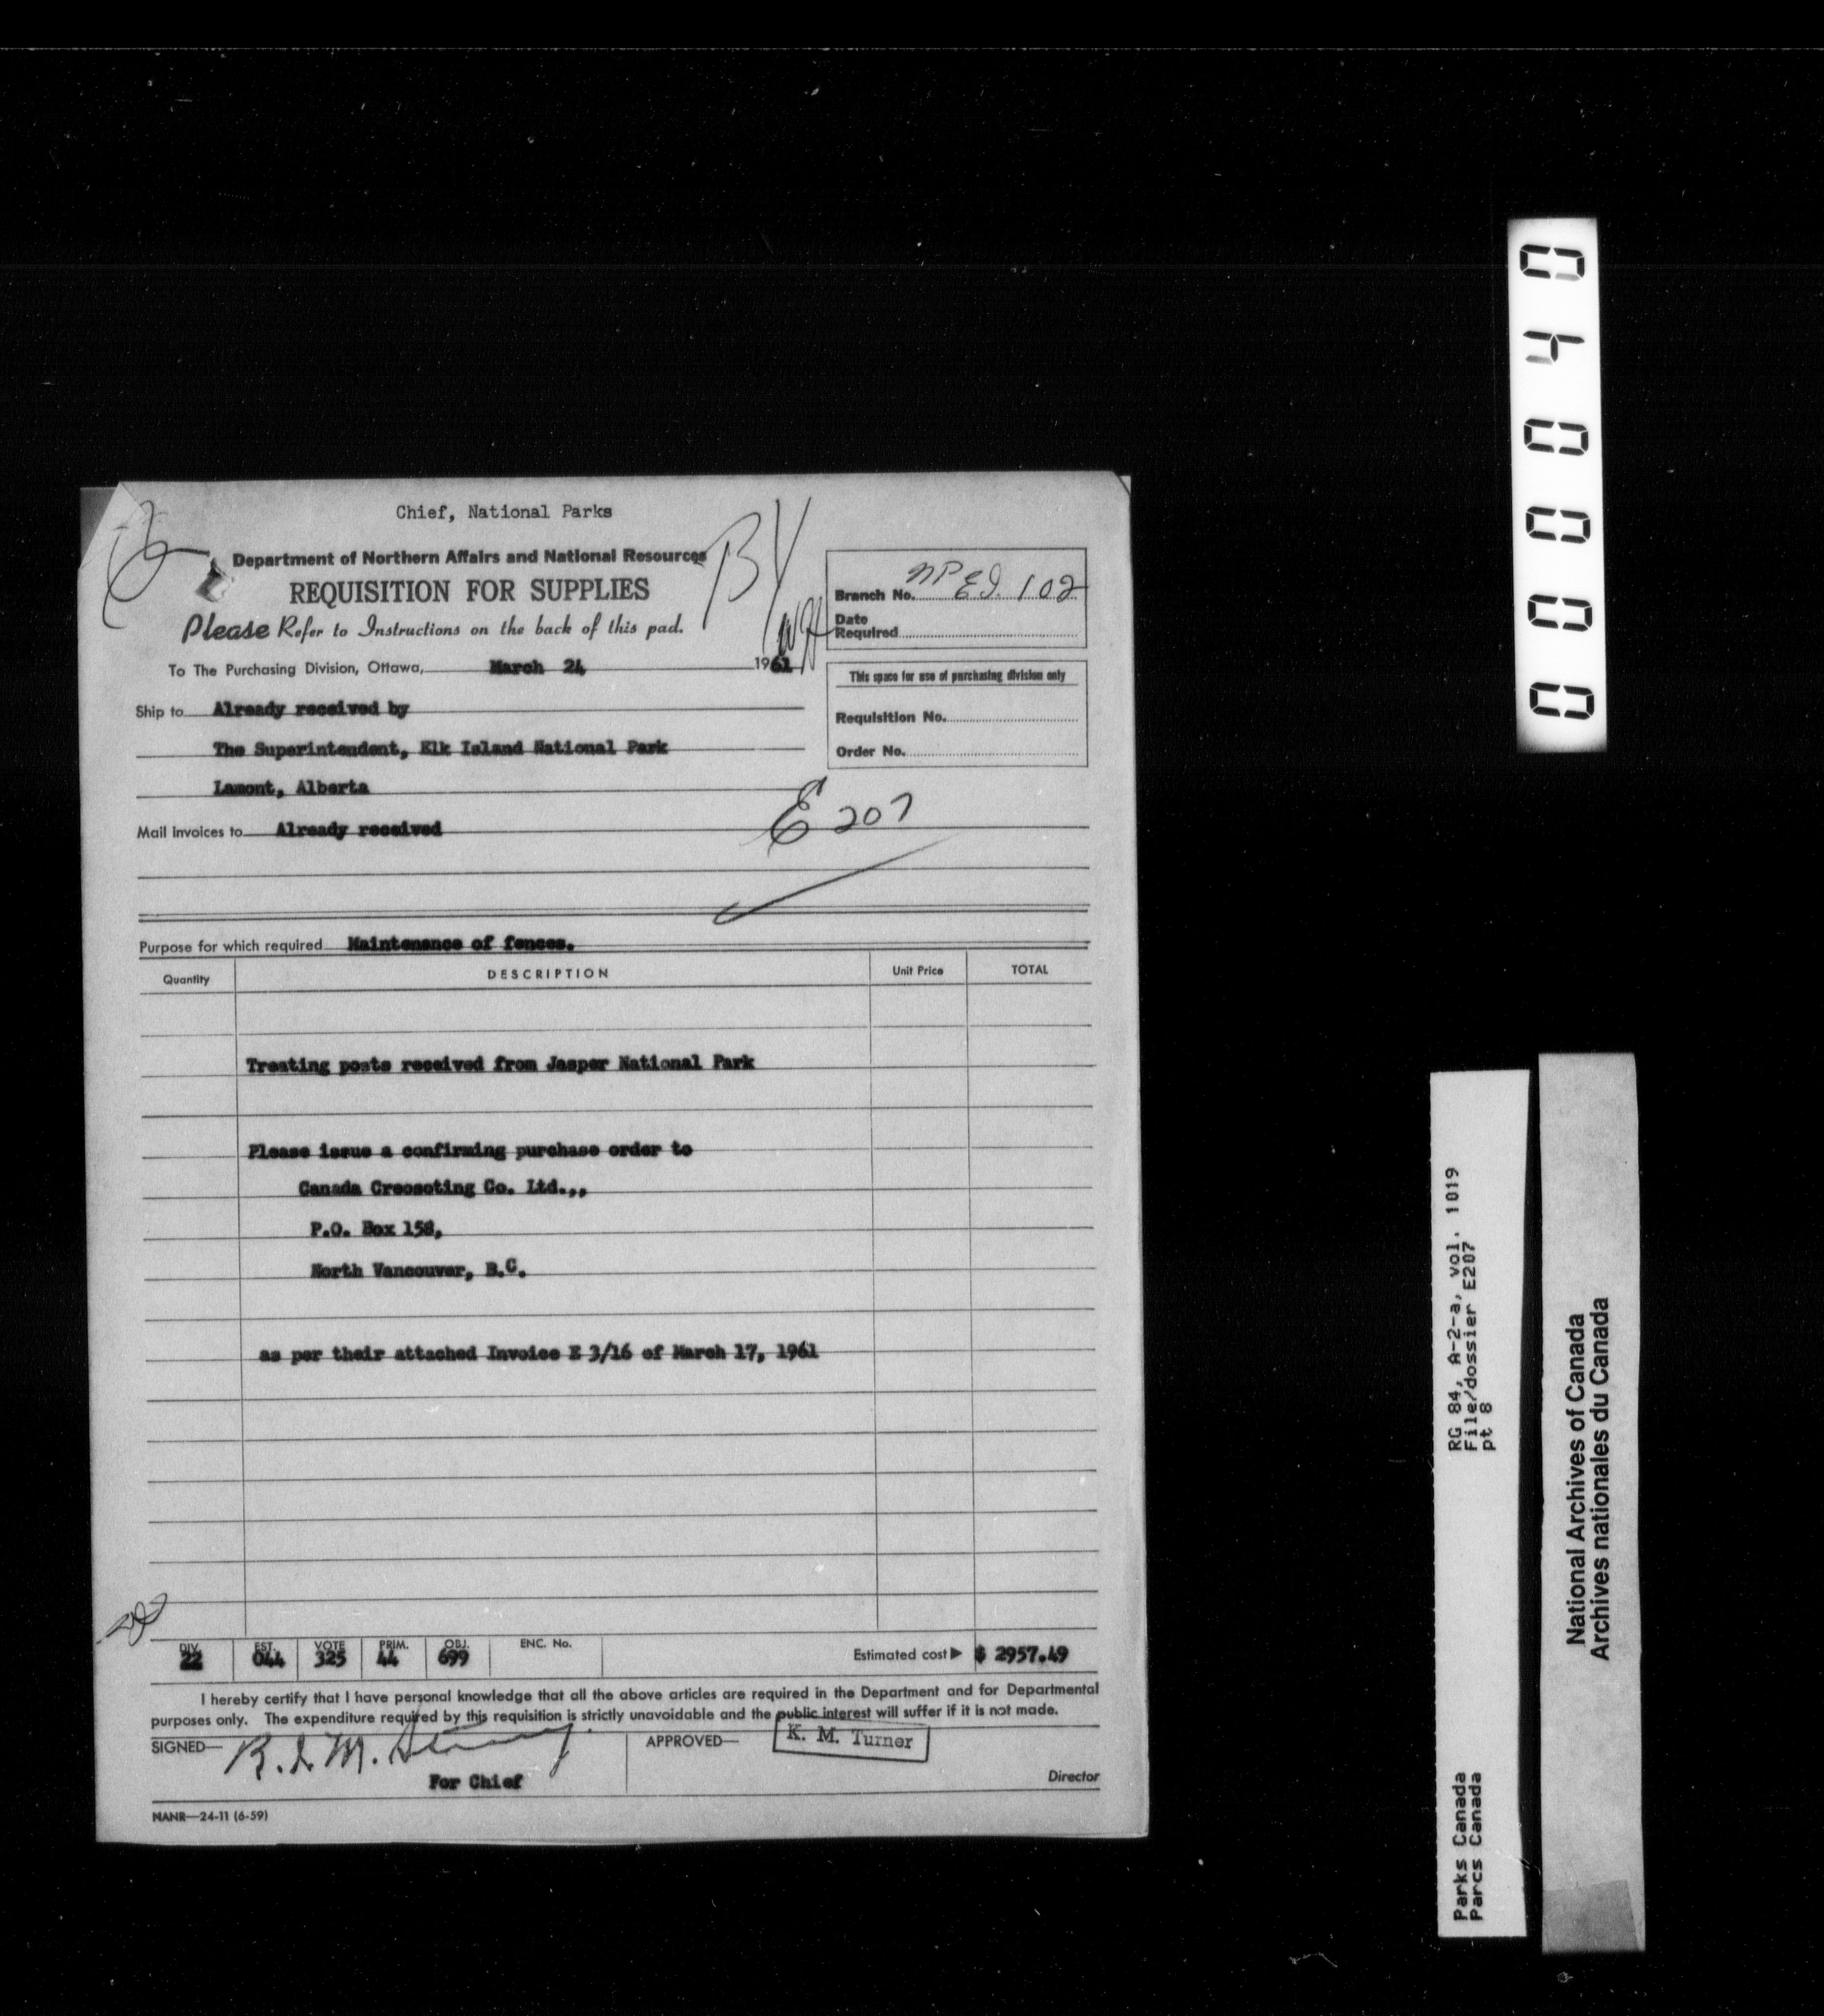 Chief, National Parks
Department of Northern Affairs and National Resources
REQUISITION FOR SUPPLIES
Please Refer to Instructions on the back of this pad.
BY
Branch No. NP EI. 102
Date
Required
To The Purchasing Division, Ottawa, March 24 1961
This space for use of purchasing division only
Requisition No.
Order No.
Ship to Already received by
The Superintendent, Elk Island National Park
Lamont, Alberta
Mail invoices to Already received
E 207
Purpose for which required Maintenance of fences.
Quantity DESCRIPTION Unit Price TOTAL
Treating posts received from Jasper National Park
Please issue a confirming purchase order to
Canada Creosoting Co. Ltd.,,
P.O. Box 158,
North Vancouver, B.C.
as per their attached Invoice E 3/16 of March 17, 1961
DIV. EST. VOTE PRIM. OBJ. ENC. No.
22 044 325 44 699 Estimated cost ▶ $ 2957.49
I hereby certify that I have personal knowledge that all the above articles are required in the Department and for Departmental
purposes only. The expenditure required by this requisition is strictly unavoidable and the public interest will suffer if it is not made.
SIGNED— APPROVED— K. M. Turner
For Chief Director
NANR—24-11 (6-59)
000040
RG 84, A-2-a, vol. 1019
File/dossier E207
pt 8
Parks Canada
Parcs Canada
National Archives of Canada
Archives nationales du Canada